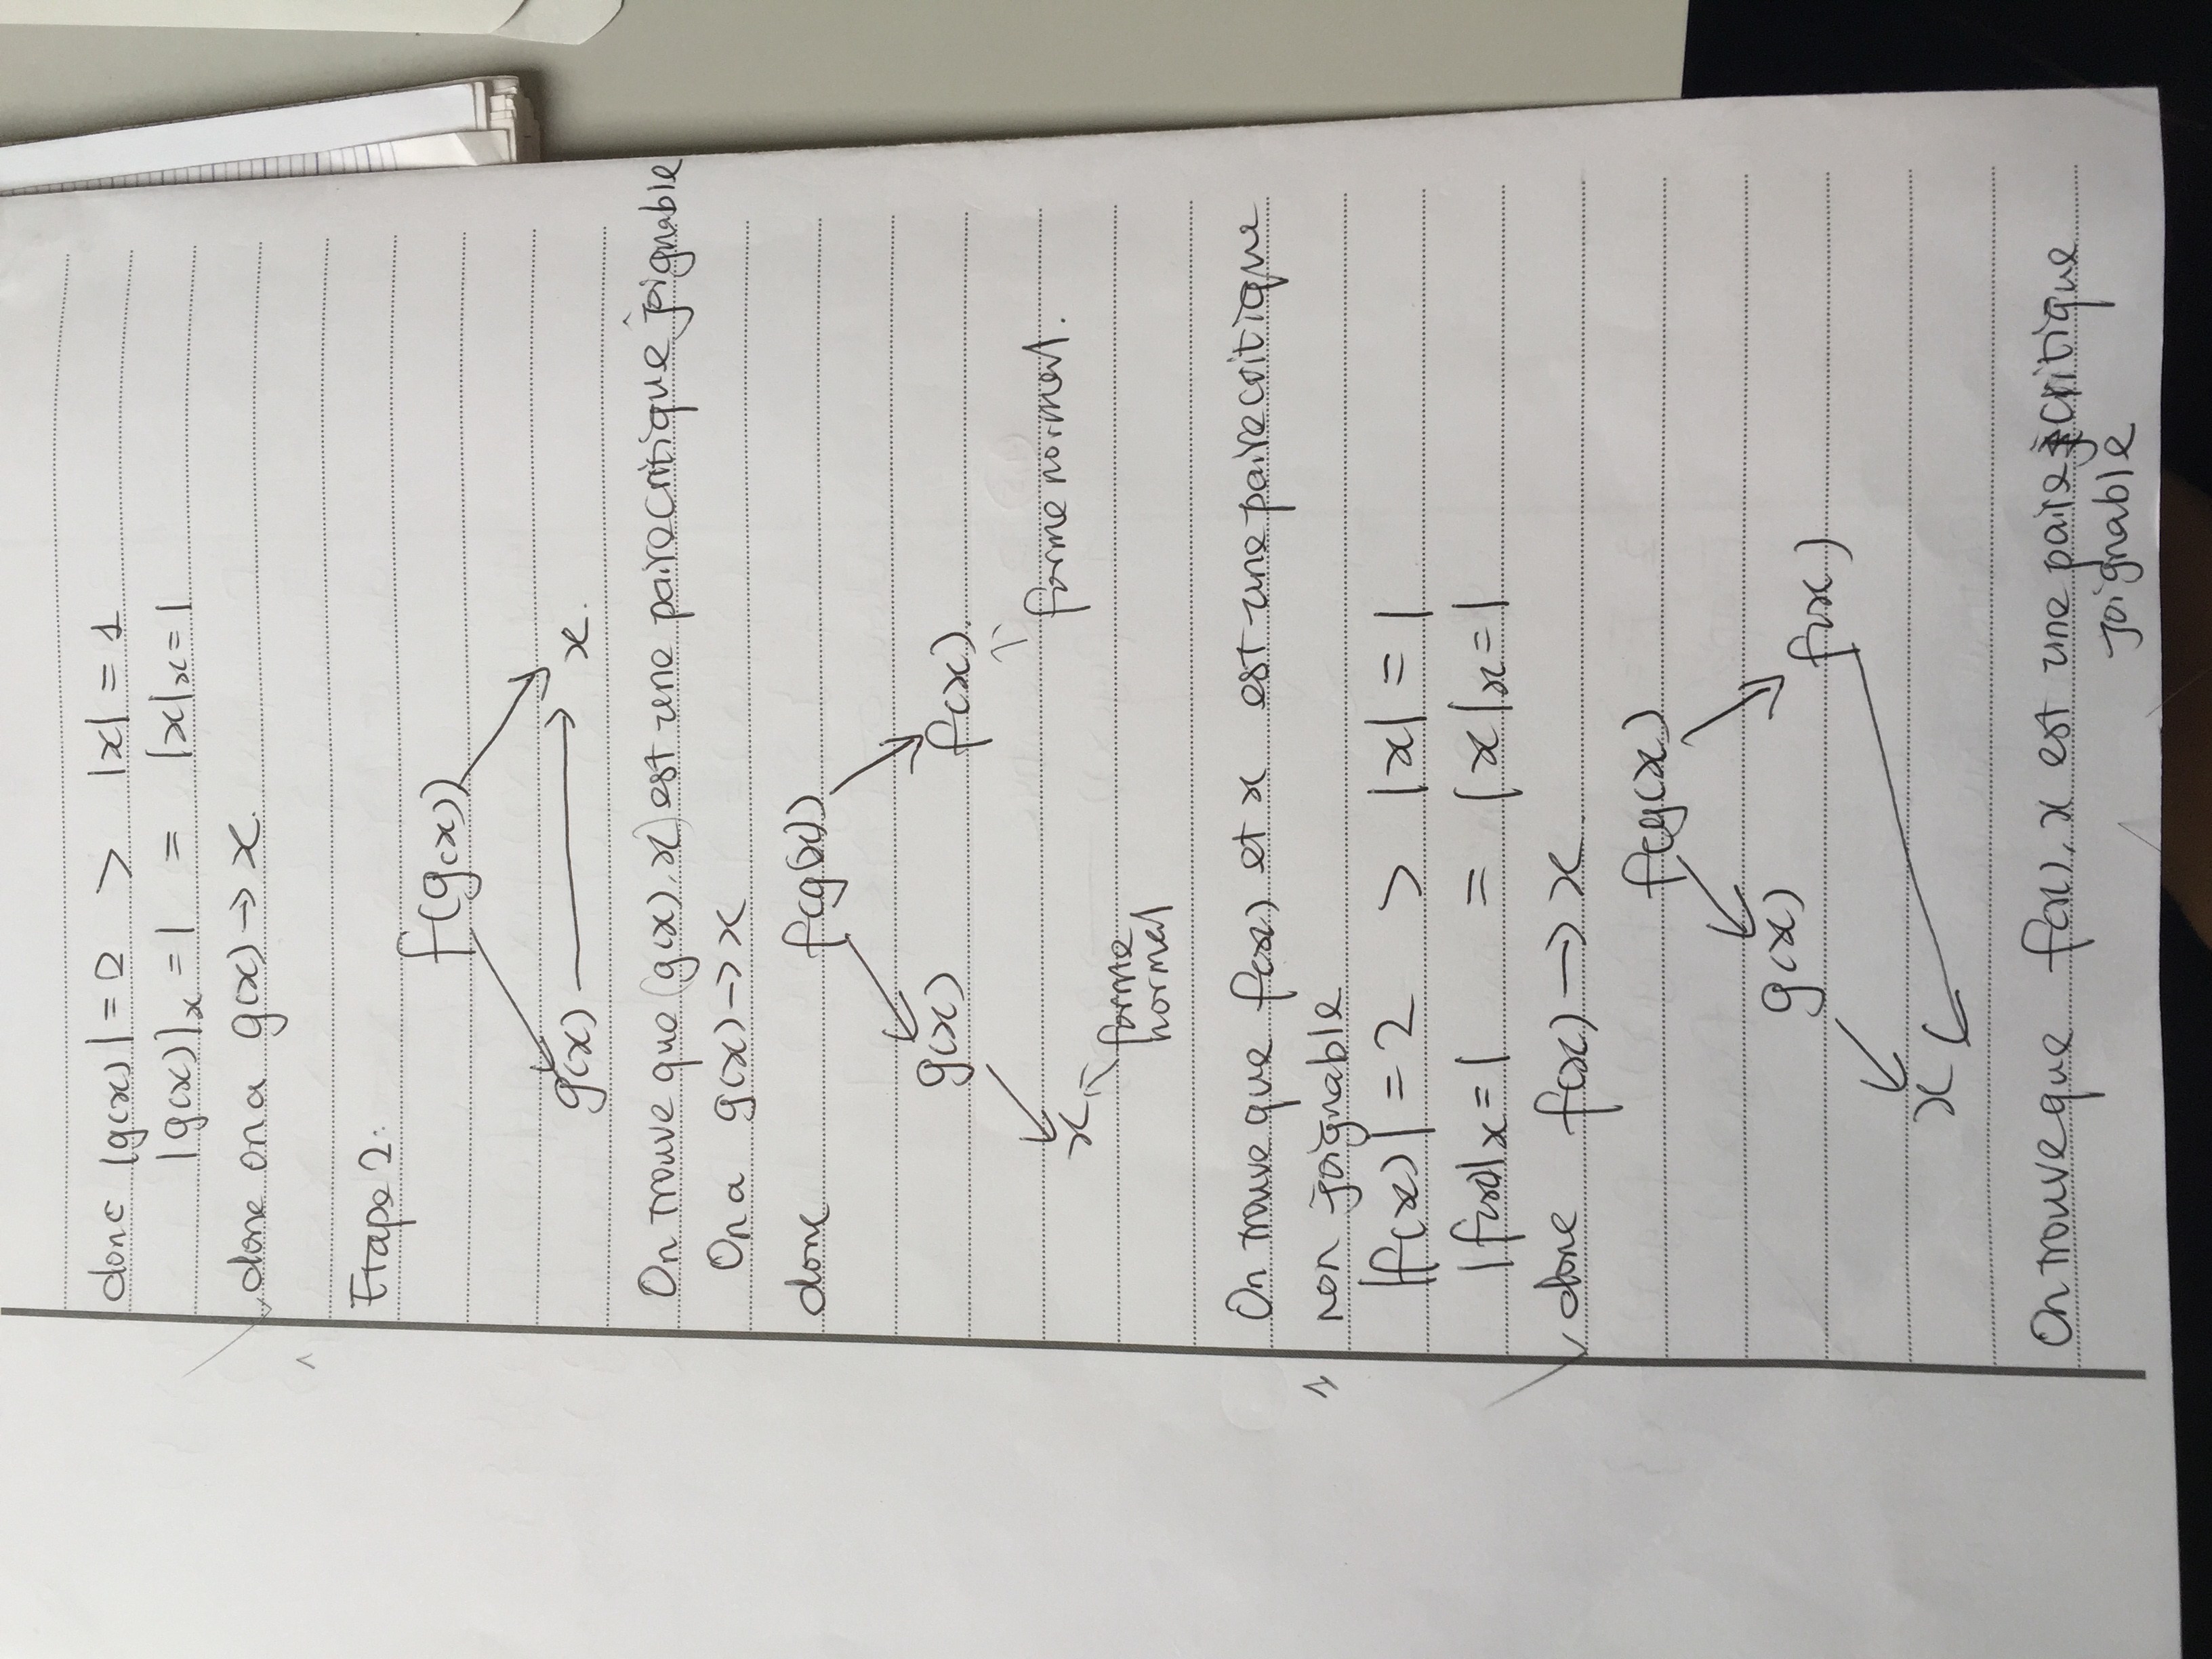 donc |g(x)| = 2 > |x| = 1
|g(x)|x = 1 = |x|x = 1
donc on a g(x) → x.
Etape 2:
f(g(x))
g(x) → x.
On trouve que (g(x), x) est une paire critique joignable
On a g(x) → x
donc f(g(x))
g(x) f(x).
forme normal.
x
forme
normal
On trouve que f(x) et x est une paire critique
1 non joignable
|f(x)| = 2 > |x| = 1
|f(x)|x = 1 = |x|x = 1
donc f(x) → x.
f(g(x)
g(x)
f(x)
x
On trouve que f(x), x est une paire critique
joignable